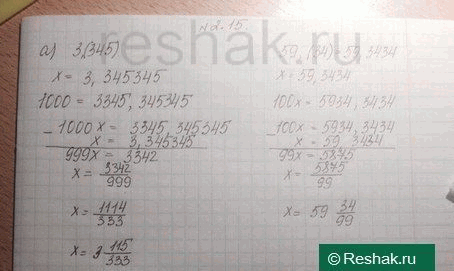 №2.15.
а) 3,(345)
x = 3,345345
1000 = 3345,345345
- 1000x = 3345,345345
x = 3,345345
999x = 3342
x = 3342/999
x = 1114/333
x = 3 115/333
59,(34) = 59,3434
x = 59,3434
100x = 5934,3434
- 100x = 5934,3434
x = 59,3434
99x = 5875
x = 5875/99
x = 59 34/99
reshak.ru
Reshak.ru